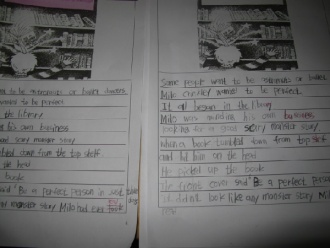 want to be astronauts or ballet dancers
wanted to be perfect
the library
his own business
good scary monster story
tumbled down from the top shelf
the head
book
said "Be a perfect person in just
any monster story Milo had ever
Some people want to be astronauts or ballet
Milo Crinkley wanted to be perfect.
It all began in the library
Milo was minding his own business
looking for a good scary monster story
when a book tumbled down from top shelf
and hit him on the head
He picked up the book
The front cover said "Be a perfect person
It didn't look like any monster story Milo